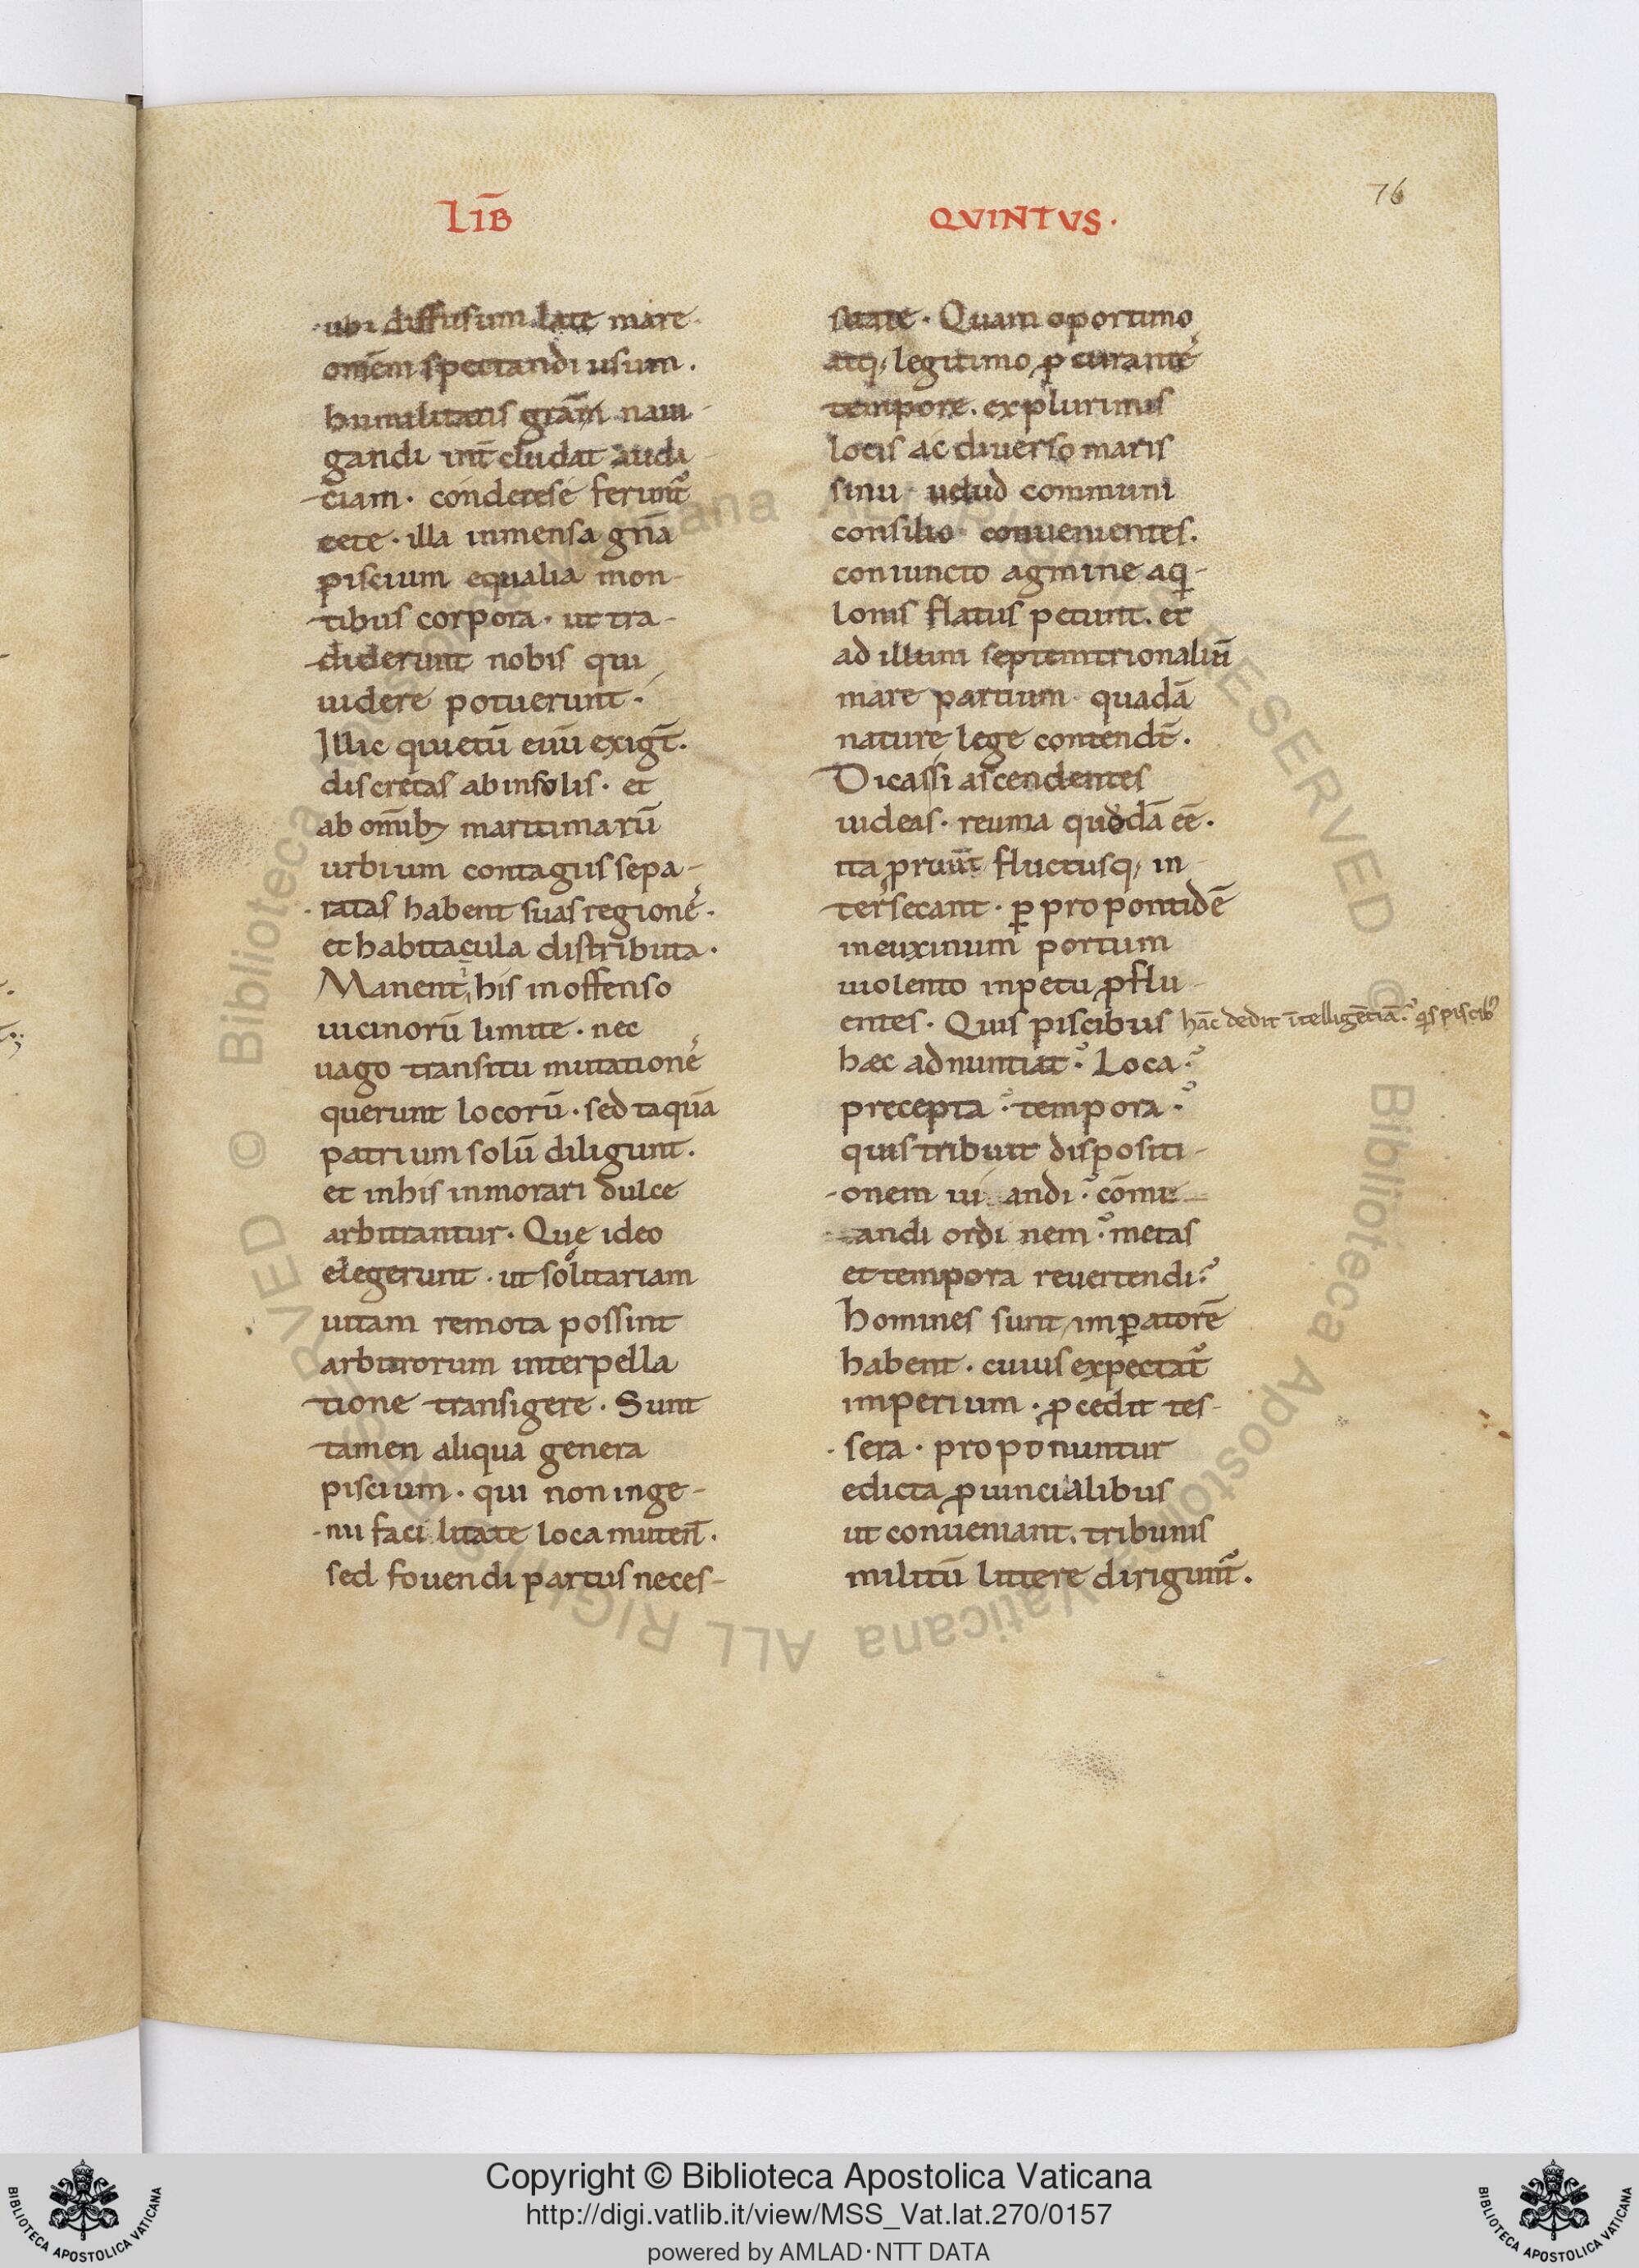 76
LIB̅
QVINTVS.
ubi diffusum late mare
om̅em spectandi usum.
humilitatis gr̅am naui-
gandi int̅cludat auda-
ciam. conderese ferunt᷑
cete. illa inmensa gn̅a
piscium equalia mon-
tibus corpora. ut tra-
diderunt nobis qui
uidere potuerunt.
Illic quietu̅ euu̅ exigt̅.
discretas ab insolis. et
ab om̅ib; maritimaru̅
urbium contagiis sepa-
ratas habent suas regione᷑.
et habitacula distributa.
Manent, his inoffenso
uicinoru̅ limite. nec
uago transitu mutatione᷑
querunt locoru̅. sed taqua̅
patrium solu̅ diligunt.
et inhis inmorari dulce
arbitrantur. Quę ideo
elegerunt. ut solitariam
uitam remota possint
arbitrorum interpella
tione transigere. Sunt
tamen aliqua genera
piscium. qui non inge-
nii facilitate loca muten̅.
sed fouendi partus neces-
sitate. Quam oportuno
atq; legitimo ꝓcurante᷑
tempore. explurimis
locis ac diuerso maris
sinu uelud communi
consilio conuenientes.
coniuncto agmine aqi-
lonis flatus petunt. et
ad illum septemtrionaliu̅
mare partium quada̅
nature lege contendt̅.
Dicassi ascendentes
uideas. reuma quoda̅ ee̅.
ita ꝓruunt fluctusq; in
tersecant. ꝑ propontide̅
ineuxinum portum
uiolento inpetu ꝓflu-
entes. Quis piscibus
ha̅c dedit i̅tellige̅tia̅? qis piscib᷒
hæc adnuntiat? Loca?
precepta? tempora?
quis tribuit dispositi-
onem ui andi? co̅me
andi ordinem? metas
et tempora reuertendi?
homines sunt, imꝑatore̅
habent. cuius expectat᷑
imperium. ꝓcedit tes-
sera. proponuntur
edicta ꝓuincialibus
ut conueniant. tribunis
militu̅ littere dirigunt᷑.
Copyright © Biblioteca Apostolica Vaticana
http://digi.vatlib.it/view/MSS_Vat.lat.270/0157
powered by AMLAD·NTT DATA
BIBLIOTECA APOSTOLICA VATICANA
BIBLIOTECA APOSTOLICA VATICANA